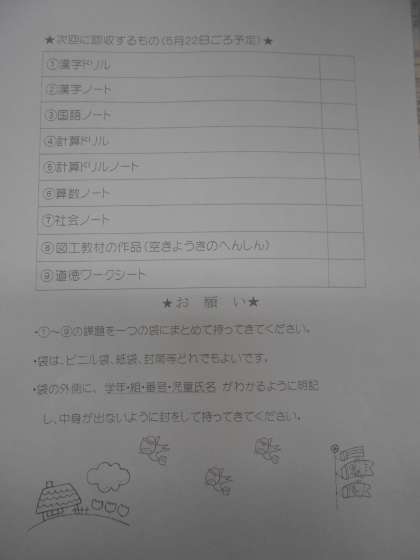 ★次回に回収するもの(5月22日ごろ予定)★
①漢字ドリル
②漢字ノート
③国語ノート
④計算ドリル
⑤計算ドリルノート
⑥算数ノート
⑦社会ノート
⑧図工教材の作品(空きようきのへんしん)
⑨道徳ワークシート
★お 願 い★
・①～⑨の課題を一つの袋にまとめて持ってきてください。
・袋は、ビニル袋、紙袋、封筒等どれでもよいです。
・袋の外側に、学年・組・番号・児童氏名 がわかるように明記
し、中身が出ないように封をして持ってきてください。